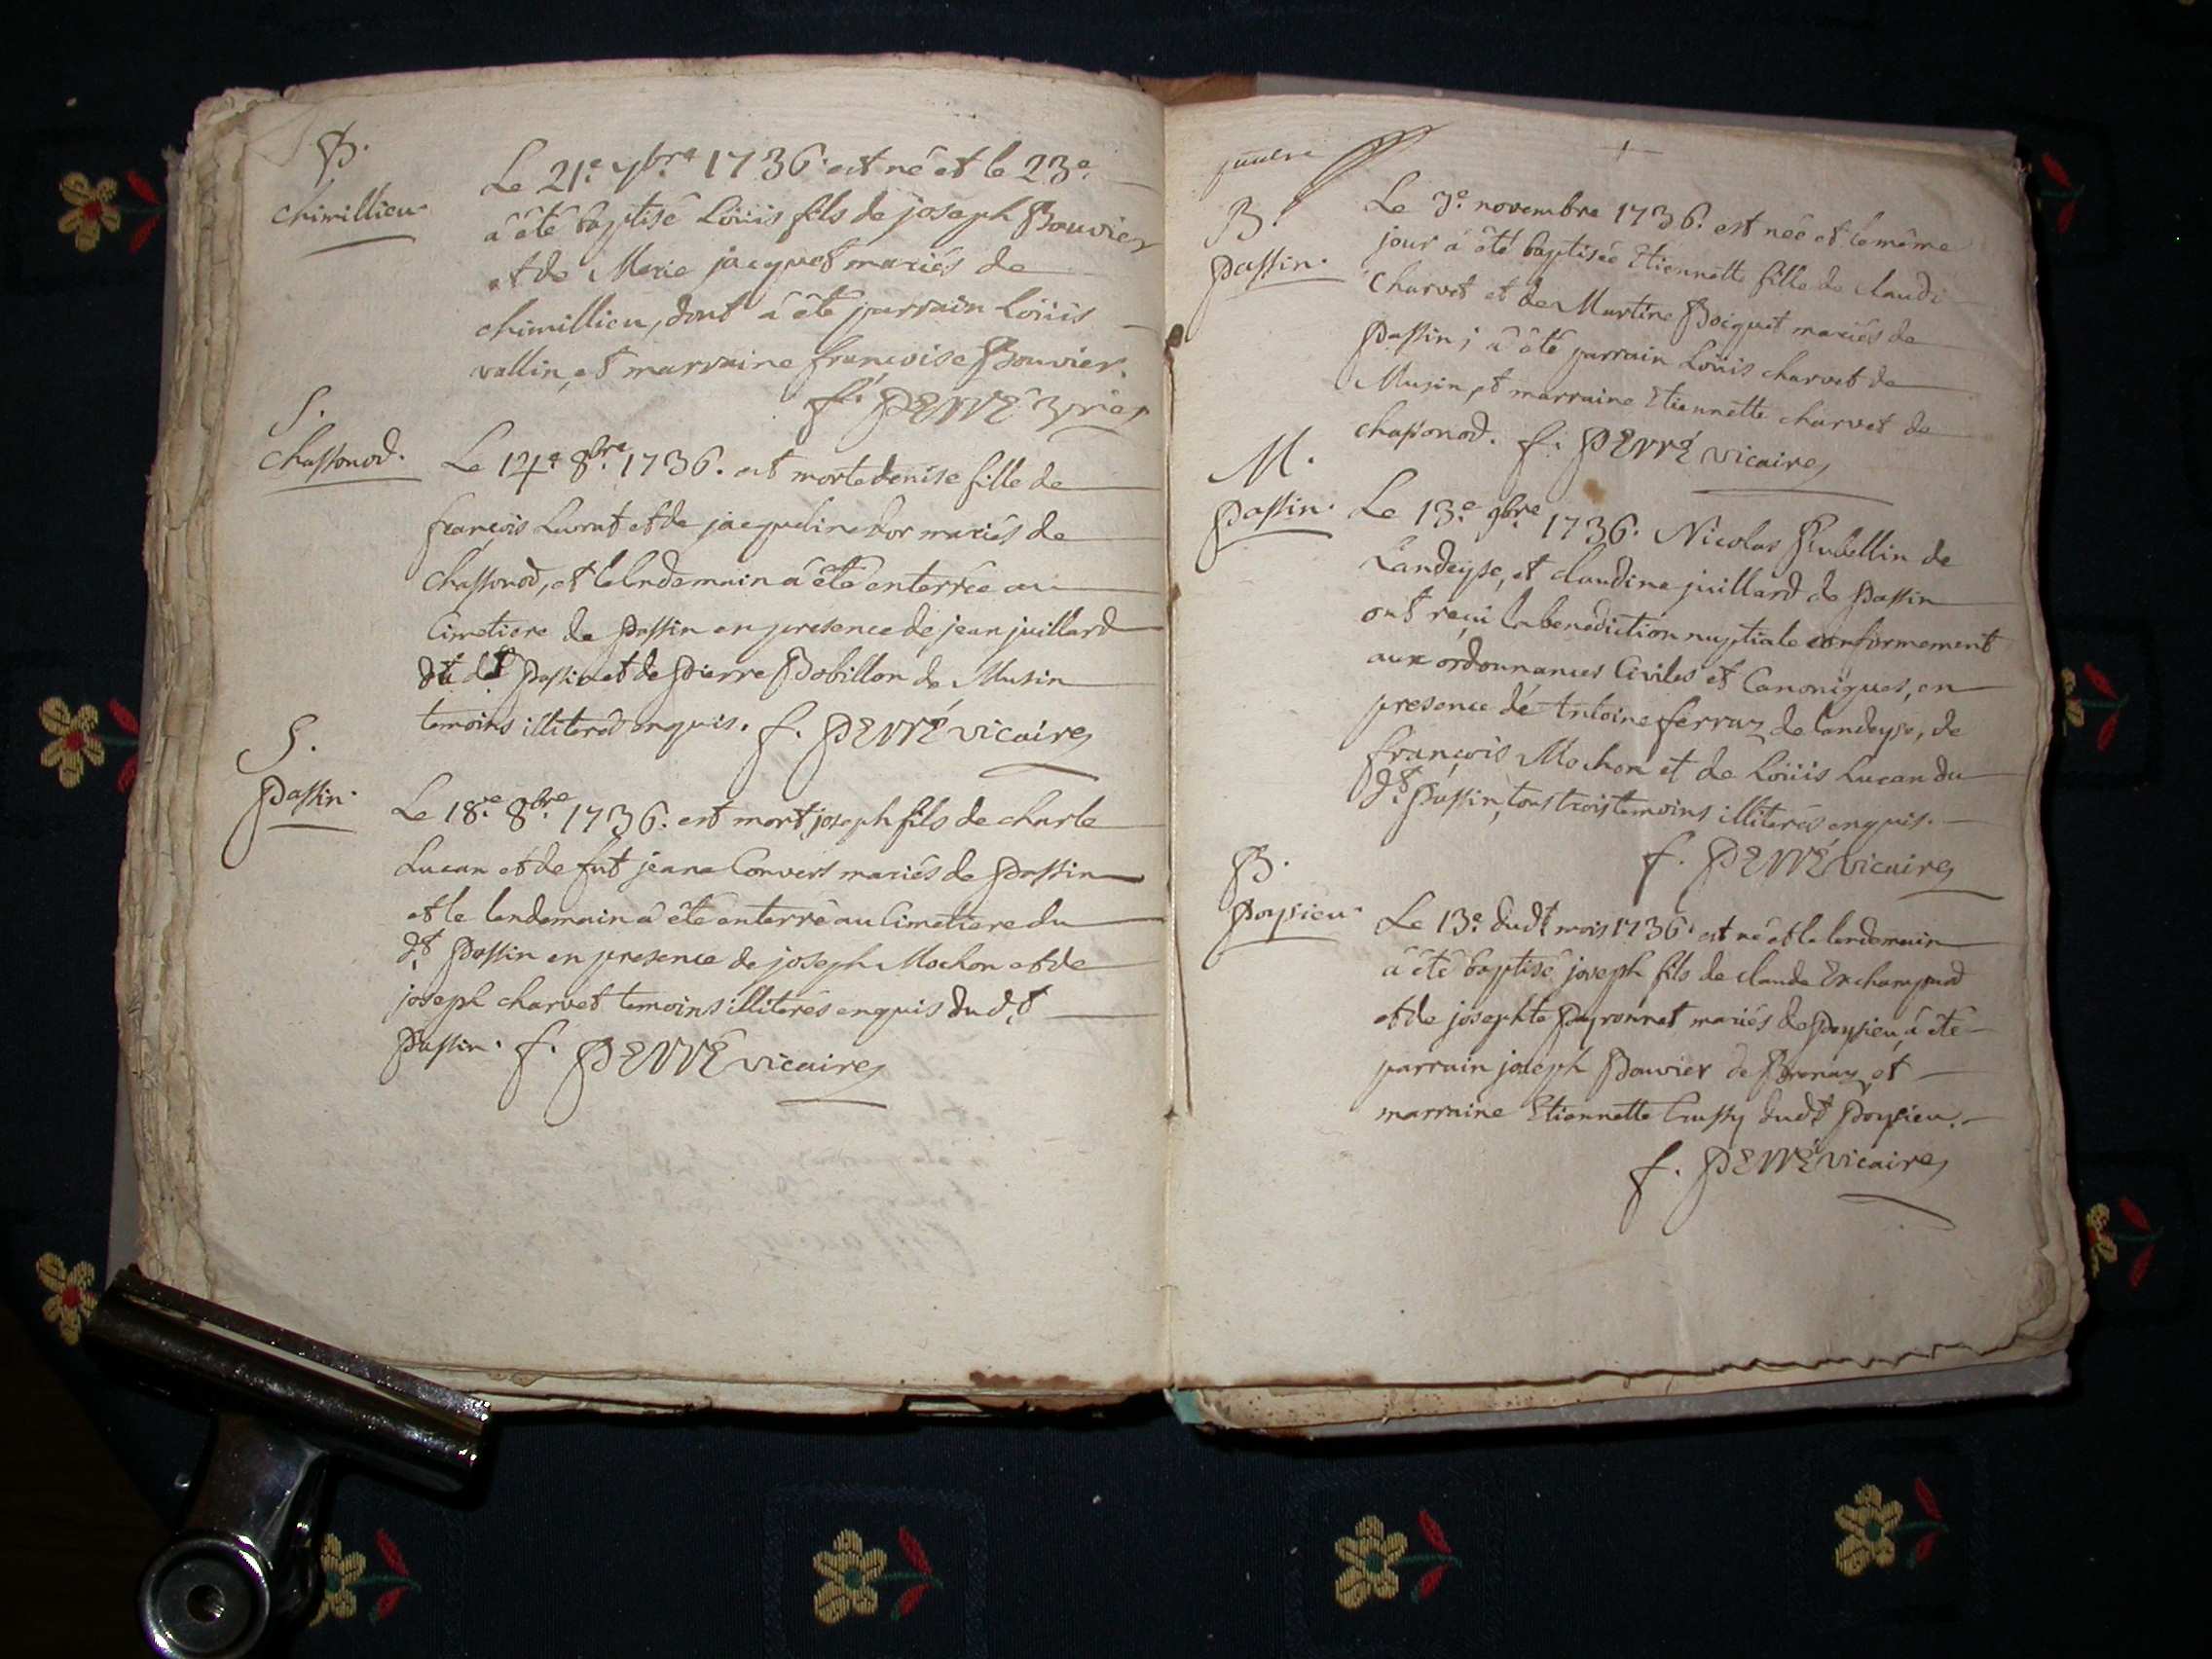 B.
chimillieu.
Le 21.e 7bre 1736. est né et le 23.e
a été baptisé Loüis fils de joseph Bouvier
et de Marie jacquet mariés de
chimillieu, dont a été parrain Loüis
vallin, et marraine françoise Bouvier.
f. PERRÉ
S.
chassonod.
Le 14.e 8bre 1736. est morte denise fille de
françois Lurat et de jacqueline dor mariés de
chassonod, et le lendemain a été enterrée au
Cimetiere de Passin en presence de jean juillard
du dt Passin et de Pierre Bobillon de Musin
temoins illiterés enquis. f. PERRÉ vicaire
S.
Passin.
Le 18.e 8bre 1736. est mort joseph fils de charle
Lucan et de fut jeane Convert mariés de Passin
et le lendemain a été enterré au Cimetiere du
dt Passin en presence de joseph Mochon et de
joseph charvet temoins illiterés enquis du dt
Passin. f. PERRÉ vicaire
B.
Passin.
Le 3.e novembre 1736. est née et le même
jour a été baptisée Etiennette fille de claude
Charvet et de Martine Boiquet mariés de
Passin; a été parrain Loüis charvet de
Musin, et marraine Etiennette charvet de
chassonod. f. PERRÉ vicaire
M.
Passin.
Le 13.e 9bre 1736. Nicolas Rubellin de
Landeyse, et claudine juillard de Passin
ont reçu la benediction nuptiale conformement
aux ordonnances Civiles et Canoniques, en
presence de Antoine ferraz de landeyse, de
françois Mochon et de Loüis Lucan du
dt Passin, tous trois temoins illiterés enquis.
f. PERRÉ vicaire
B.
Poysieu.
Le 13.e dudt mois 1736. est né et le lendemain
a été baptisé joseph fils de claude
et de josephte Peyronnet mariés de Poysieu, a été
parrain joseph Bouvier de Brenaz, et
marraine Etiennette Crussy dudt Poysieu.
f. PERRÉ vicaire